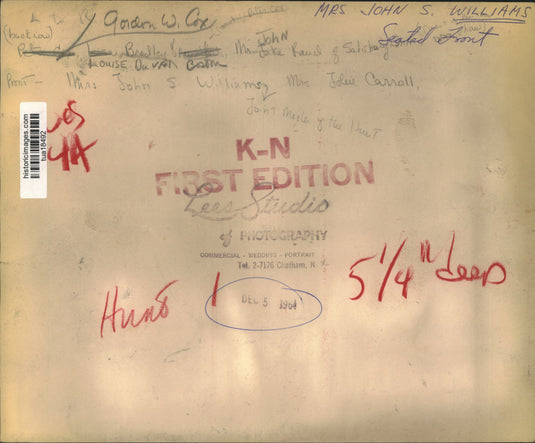 MRS JOHN S. WILLIAMS
Gordon W. Cox
(back row)
Bradley
Mr JOHN
Jake Rand of Salisbury
Seated Front
LOUISE
Front - Mrs John S Williams, Mrs Julie Carroll,
Joint Master of the Hunt
historicimages.com
tua18492
4A
K-N
FIRST EDITION
Lees Studio
of PHOTOGRAPHY
COMMERCIAL - WEDDING - PORTRAIT
Tel. 2-7176 Chatham, N.
Hunt 1
DEC 5 1964
5 1/4" deep